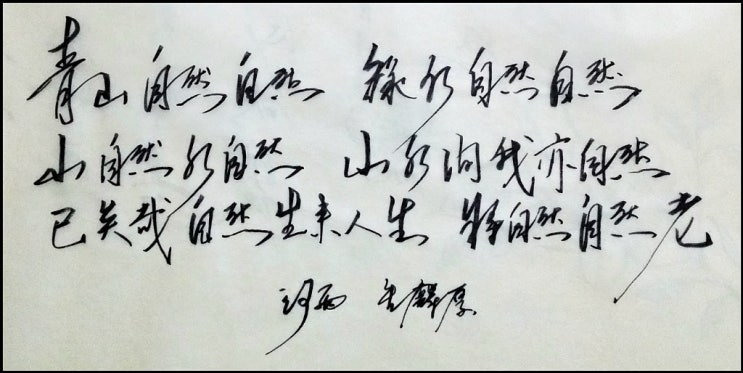 青山自然自然 绿水自然自然
山自然水自然 山水间我亦自然
已矣哉自然生来人生 将自然自然老
河西 金麟厚